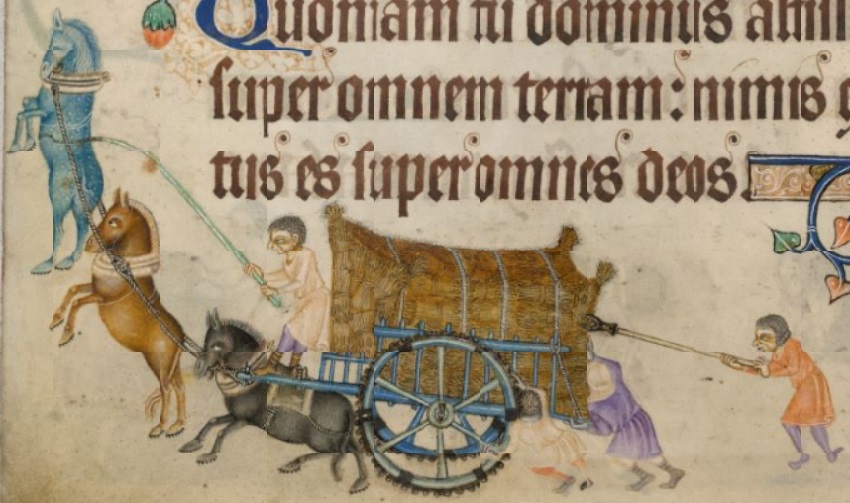 Quoniam tu dominus
super omnem terram: nimis
tus es super omnes deos.